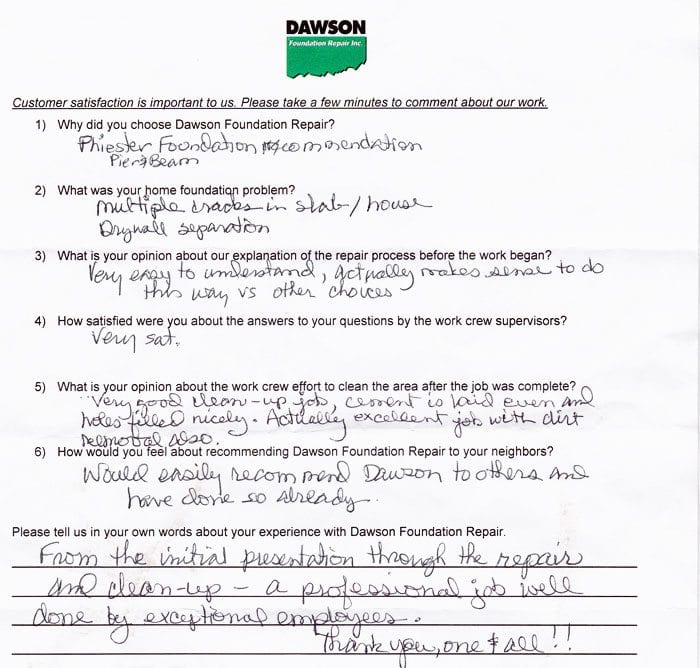 DAWSON
Foundation Repair Inc.
Customer satisfaction is important to us. Please take a few minutes to comment about our work.
1) Why did you choose Dawson Foundation Repair?
Phiester Foundation recommendation
Pier & Beam
2) What was your home foundation problem?
Multiple cracks in slab/house
Drywall separation
3) What is your opinion about our explanation of the repair process before the work began?
Very easy to understand, actually makes sense to do
this way vs other choices
4) How satisfied were you about the answers to your questions by the work crew supervisors?
Very sat.
5) What is your opinion about the work crew effort to clean the area after the job was complete?
Very good clean-up job, cement is laid even and
holes filled nicely. Actually excellent job with dirt
removal also.
6) How would you feel about recommending Dawson Foundation Repair to your neighbors?
Would easily recommend Dawson to others and
have done so already.
Please tell us in your own words about your experience with Dawson Foundation Repair.
From the initial presentation through the repair
and clean-up – a professional job well
done by exceptional employees.
Thank you, one & all!!